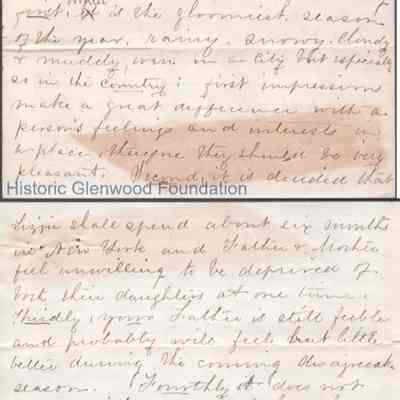 first, it is the gloomiest season
of the year, rainy, snowy, cloudy
& muddy, even in a City but especially
so in the Country; first impressions
make a great difference with a
person's feelings and interests in
a place, therefore they should be very
pleasant. Second, it is decided that
Historic Glenwood Foundation
Lizzie shall spend about six months
in New York and Father & Mother
feel unwilling to be deprived of
both their daughters at one time.
Thirdly, your Father is still feeble
and probably will feel but little
better during the coming disagreeab
season. Fourthly it does not